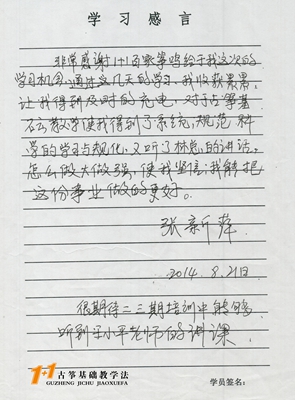 学习感言
非常感谢1+1古筝筹鸣给于我这次的
学习机会,通过这几天的学习,我收获累累,
让我得到及时的充电,对于古筝基
础教学使我得到了系统,规范,科
学的学习与规化,又听了林总的讲话。
怎么做大做强,使我坚信;我能把
这份事业做的更好。
张新萍
2014.8.21日
很期待二三期培训中能够
听到王小平老师的讲课
1+1 古筝基础教学法
GUZHENG JICHU JIAOXUEFA
学员签名: